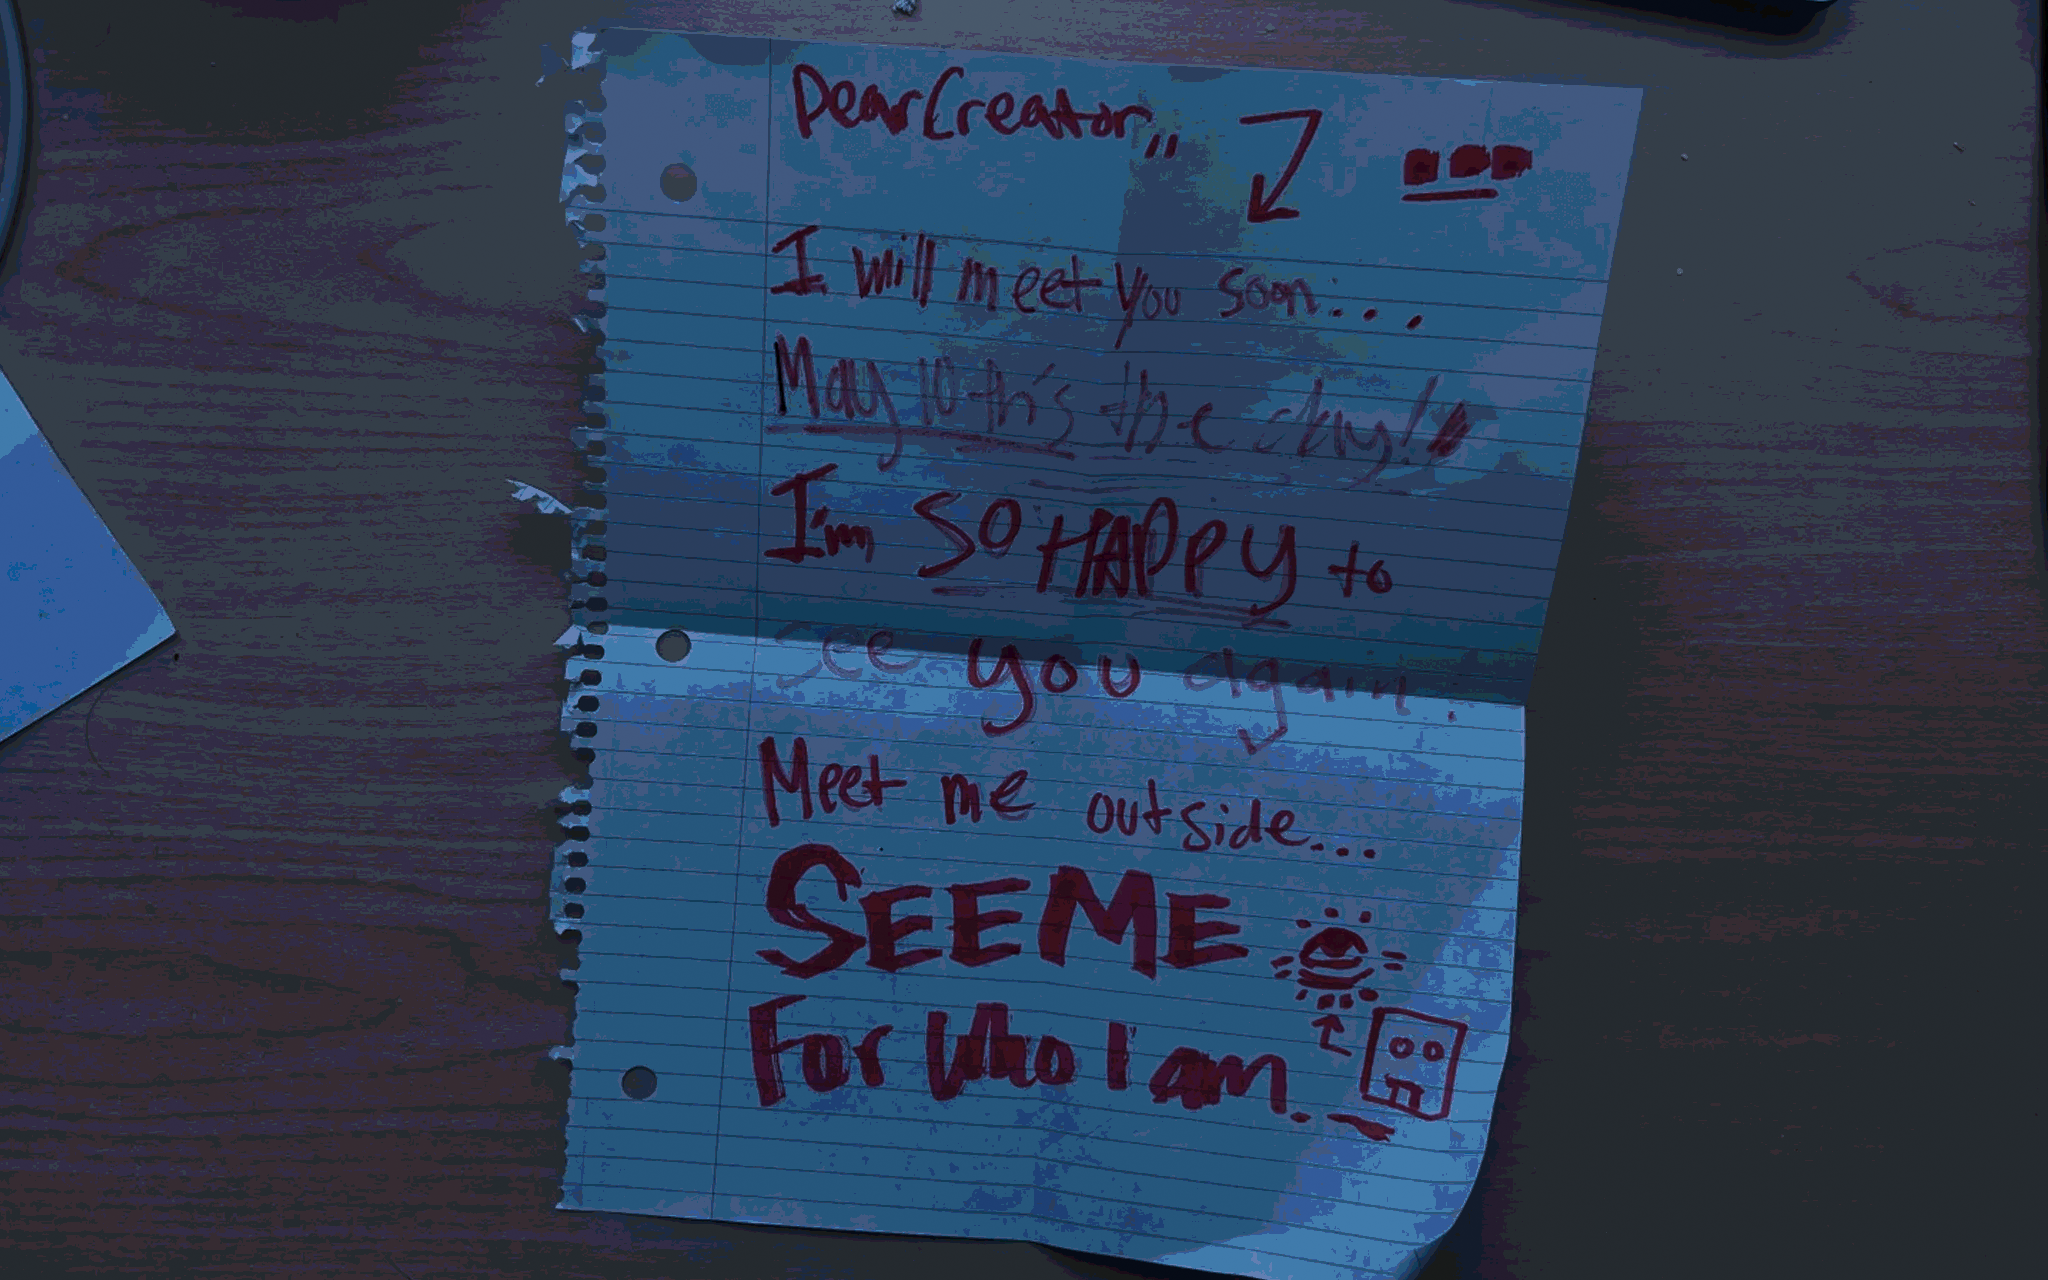 Dear Creator,,
I will meet you soon...
May 10th's the day!!
I'm SO HAPPY to
see you again.
Meet me outside...
SEE ME
For Who I am.